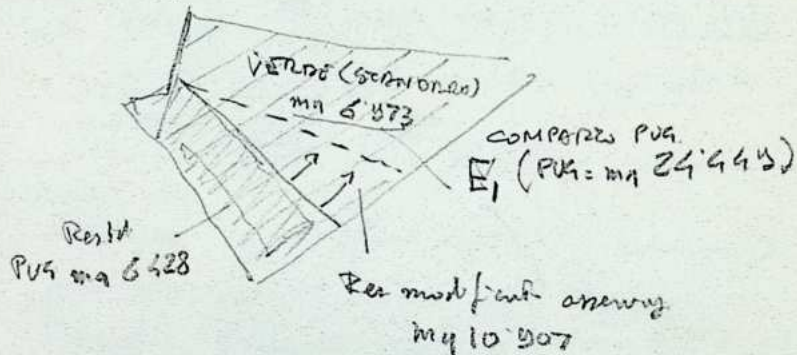 VERDE (STANDARD)
mq 6'973
COMPARTO PUG
E1 (PUG = mq 24'449)
PUG mq 6428
Res modificata
mq 10'907